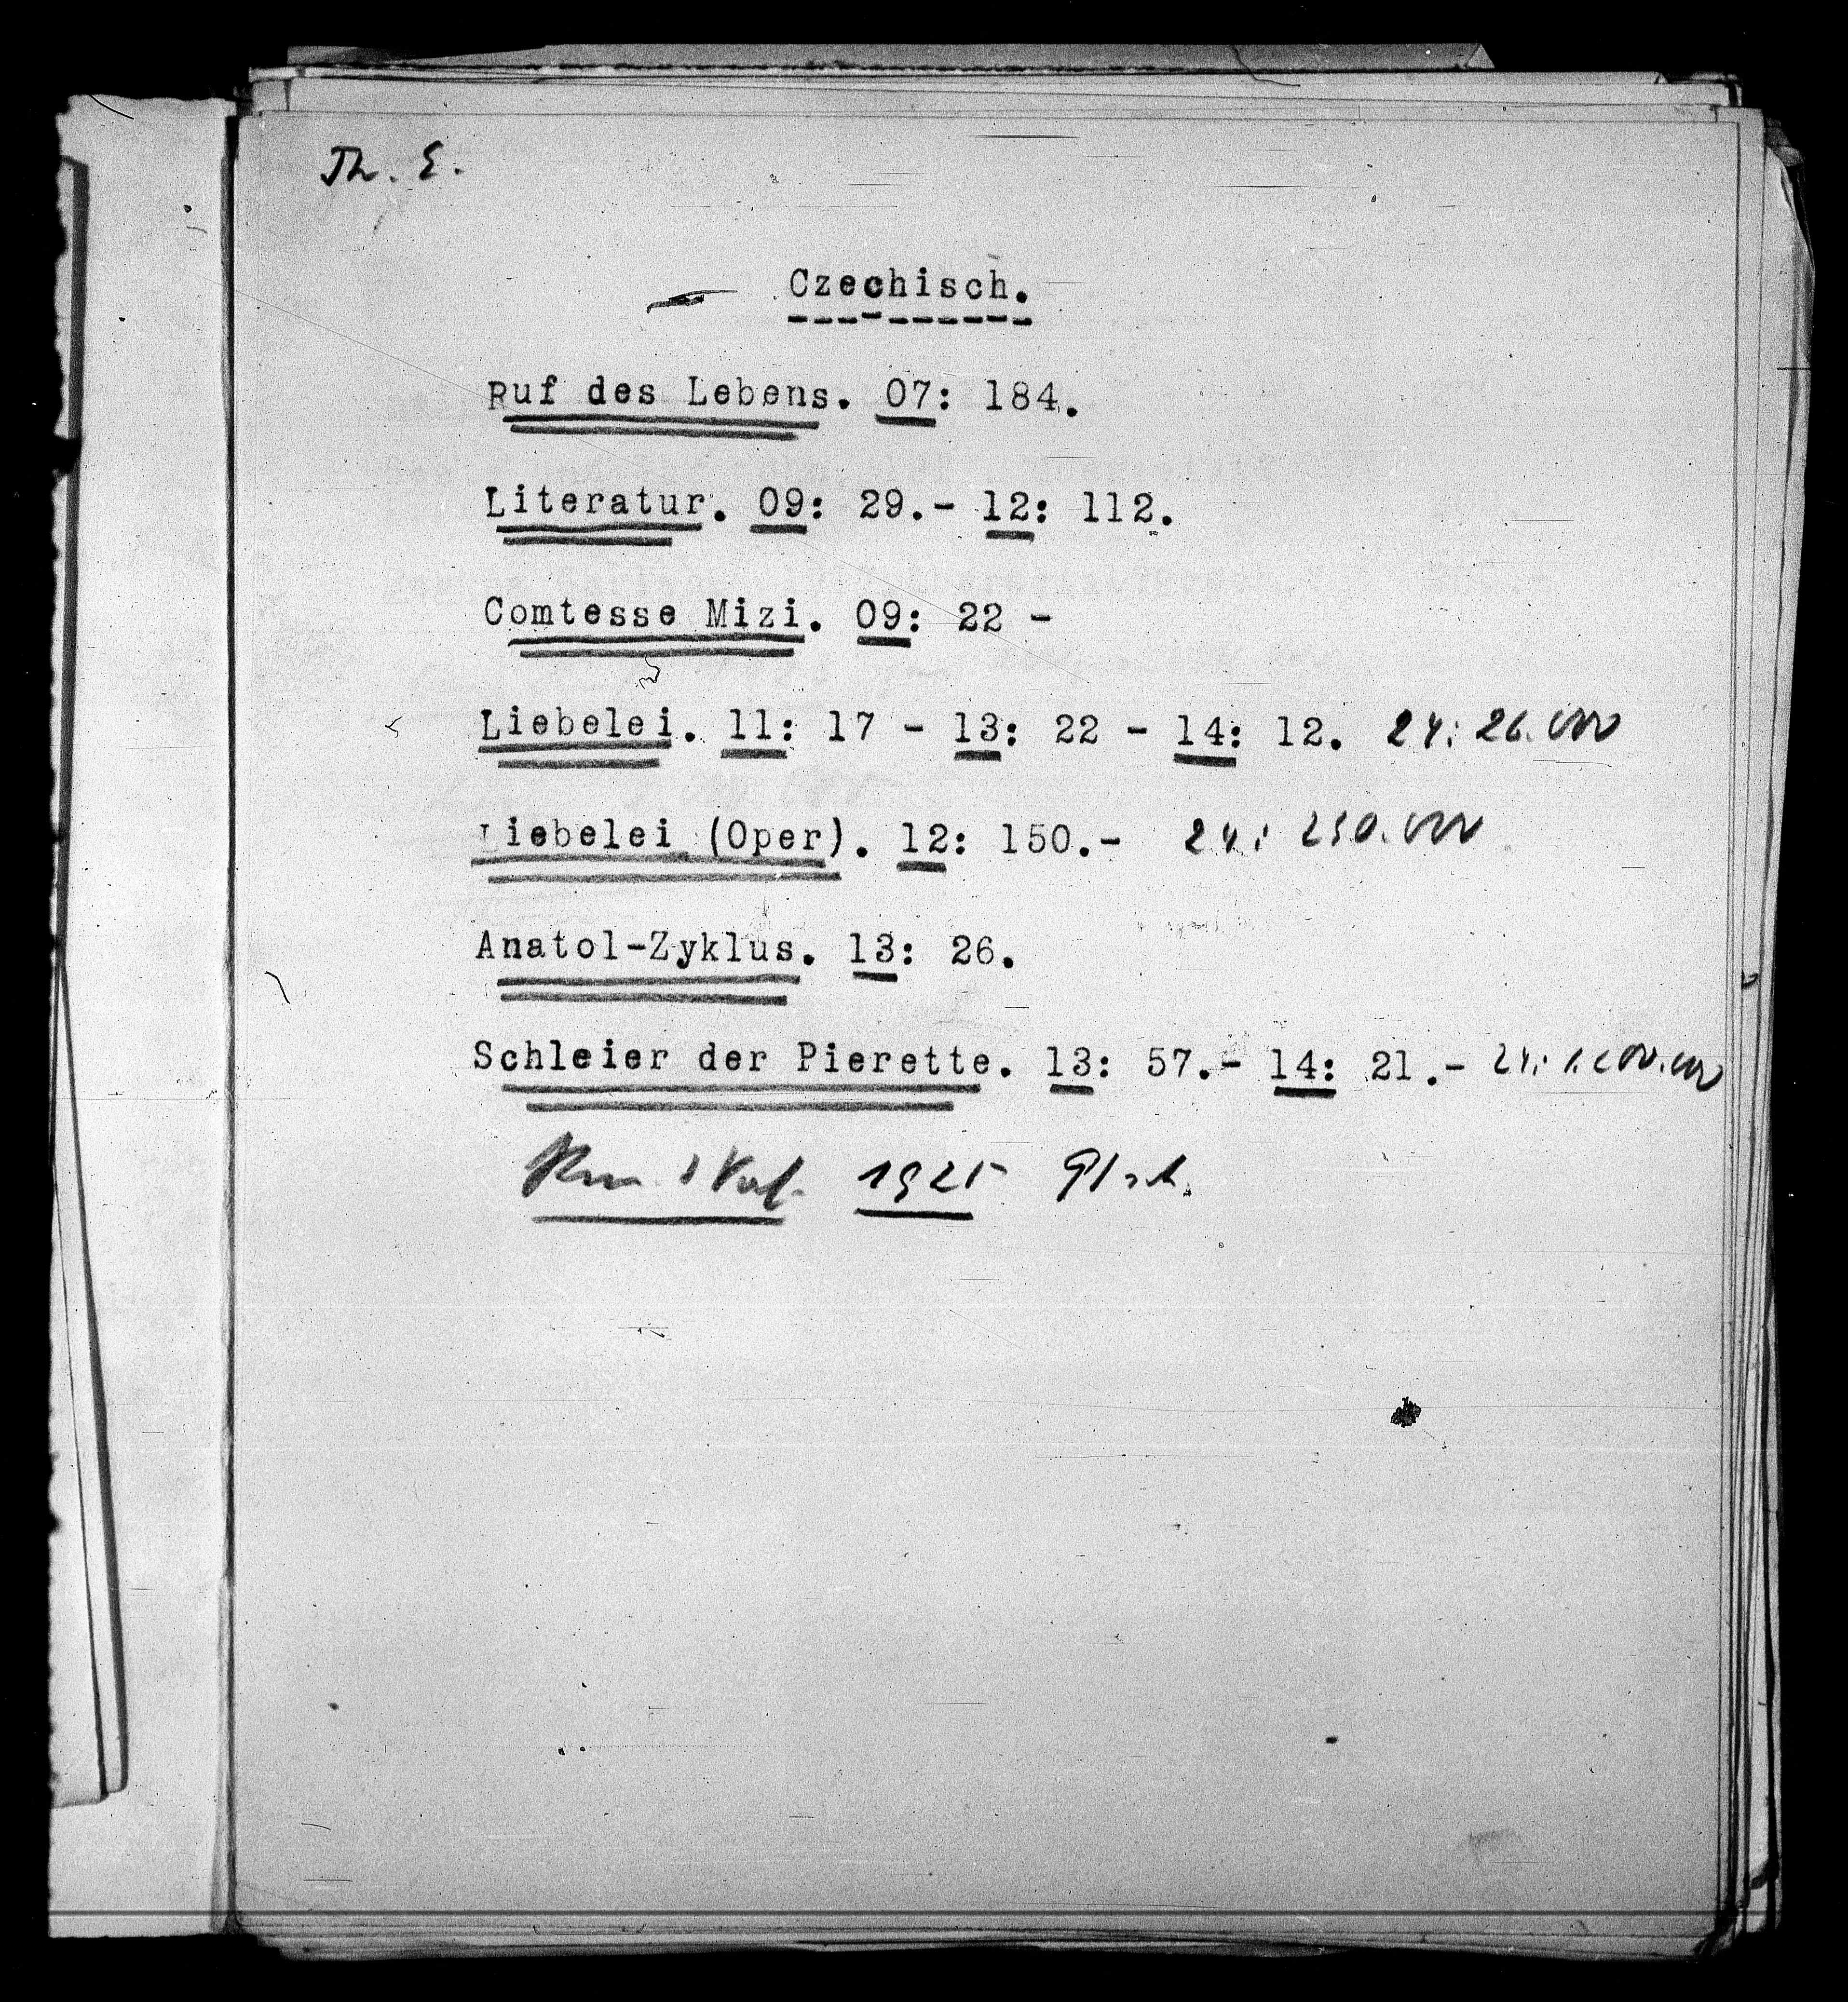 Th. E.
Czechisch.
Ruf des Lebens. 07: 184.
Literatur. 09: 29.- 12: 112.
Comtesse Mizi. 09: 22 -
Liebelei. 11: 17 - 13: 22 - 14: 12. 24: 26.000
Liebelei (Oper). 12: 150.- 24: 250.000
Anatol-Zyklus. 13: 26.
Schleier der Pierette. 13: 57.- 14: 21.- 24:
1925